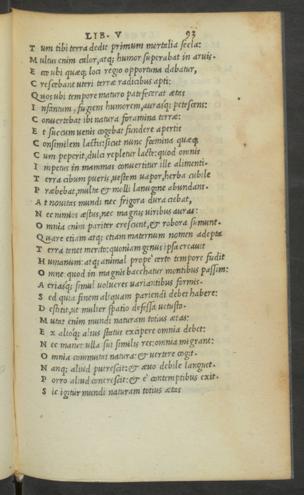 LIB. V 93
T um tibi terra dedit primum mortalia secla:
M ultus enim calor, atq; humor superabat in aruis.
E rgo ubi quæq; loca regio opportuna dabatur,
C rescebant uteri terræ radicibus apti:
Q uos ubi tempore maturo patefecerat ætas
I nfantum, fugiens humorem, aurasq; petessens:
C onuertebat ibi natura foramina terræ:
E t succum uenis cogebat fundere apertis
C onsimilem lactis: sicut nunc fœmina quæq;
C um peperit, dulci repletur lacte: quod omnis
I mpetus in mammas conuertitur ille alimenti.
T erra cibum pueris, uestem uapor, herba cubile
P ræbebat, multa & molli lanugine abundans.
A t nouitas mundi nec frigora dura ciebat,
N ec nimios æstus, nec magnis uiribus auras:
O mnia enim pariter crescunt, & robora sumunt.
Q uare etiam atq; etiam maternum nomen adepta
T erra tenet merito: quoniam genus ipsa creauit
H umanum: atq; animal prope certo tempore fudit
O mne: quod in magnis bacchatur montibus passim:
A eriasq; simul uolucres uariantibus formis.
S ed quia finem aliquam pariendi debet habere:
D estitit, ut mulier spatio defessa uetusto.
M utat enim mundi naturam totius ætas:
E x alioq; alius status excipere omnia debet:
N ec manet ulla sui similis res: omnia migrant:
O mnia commutat natura: & uertere cogit.
N anq; aliud putrescit: & æuo debile languet.
P orro aliud concrescit: & è contemptibus exit.
S ic igitur mundi naturam totius ætas